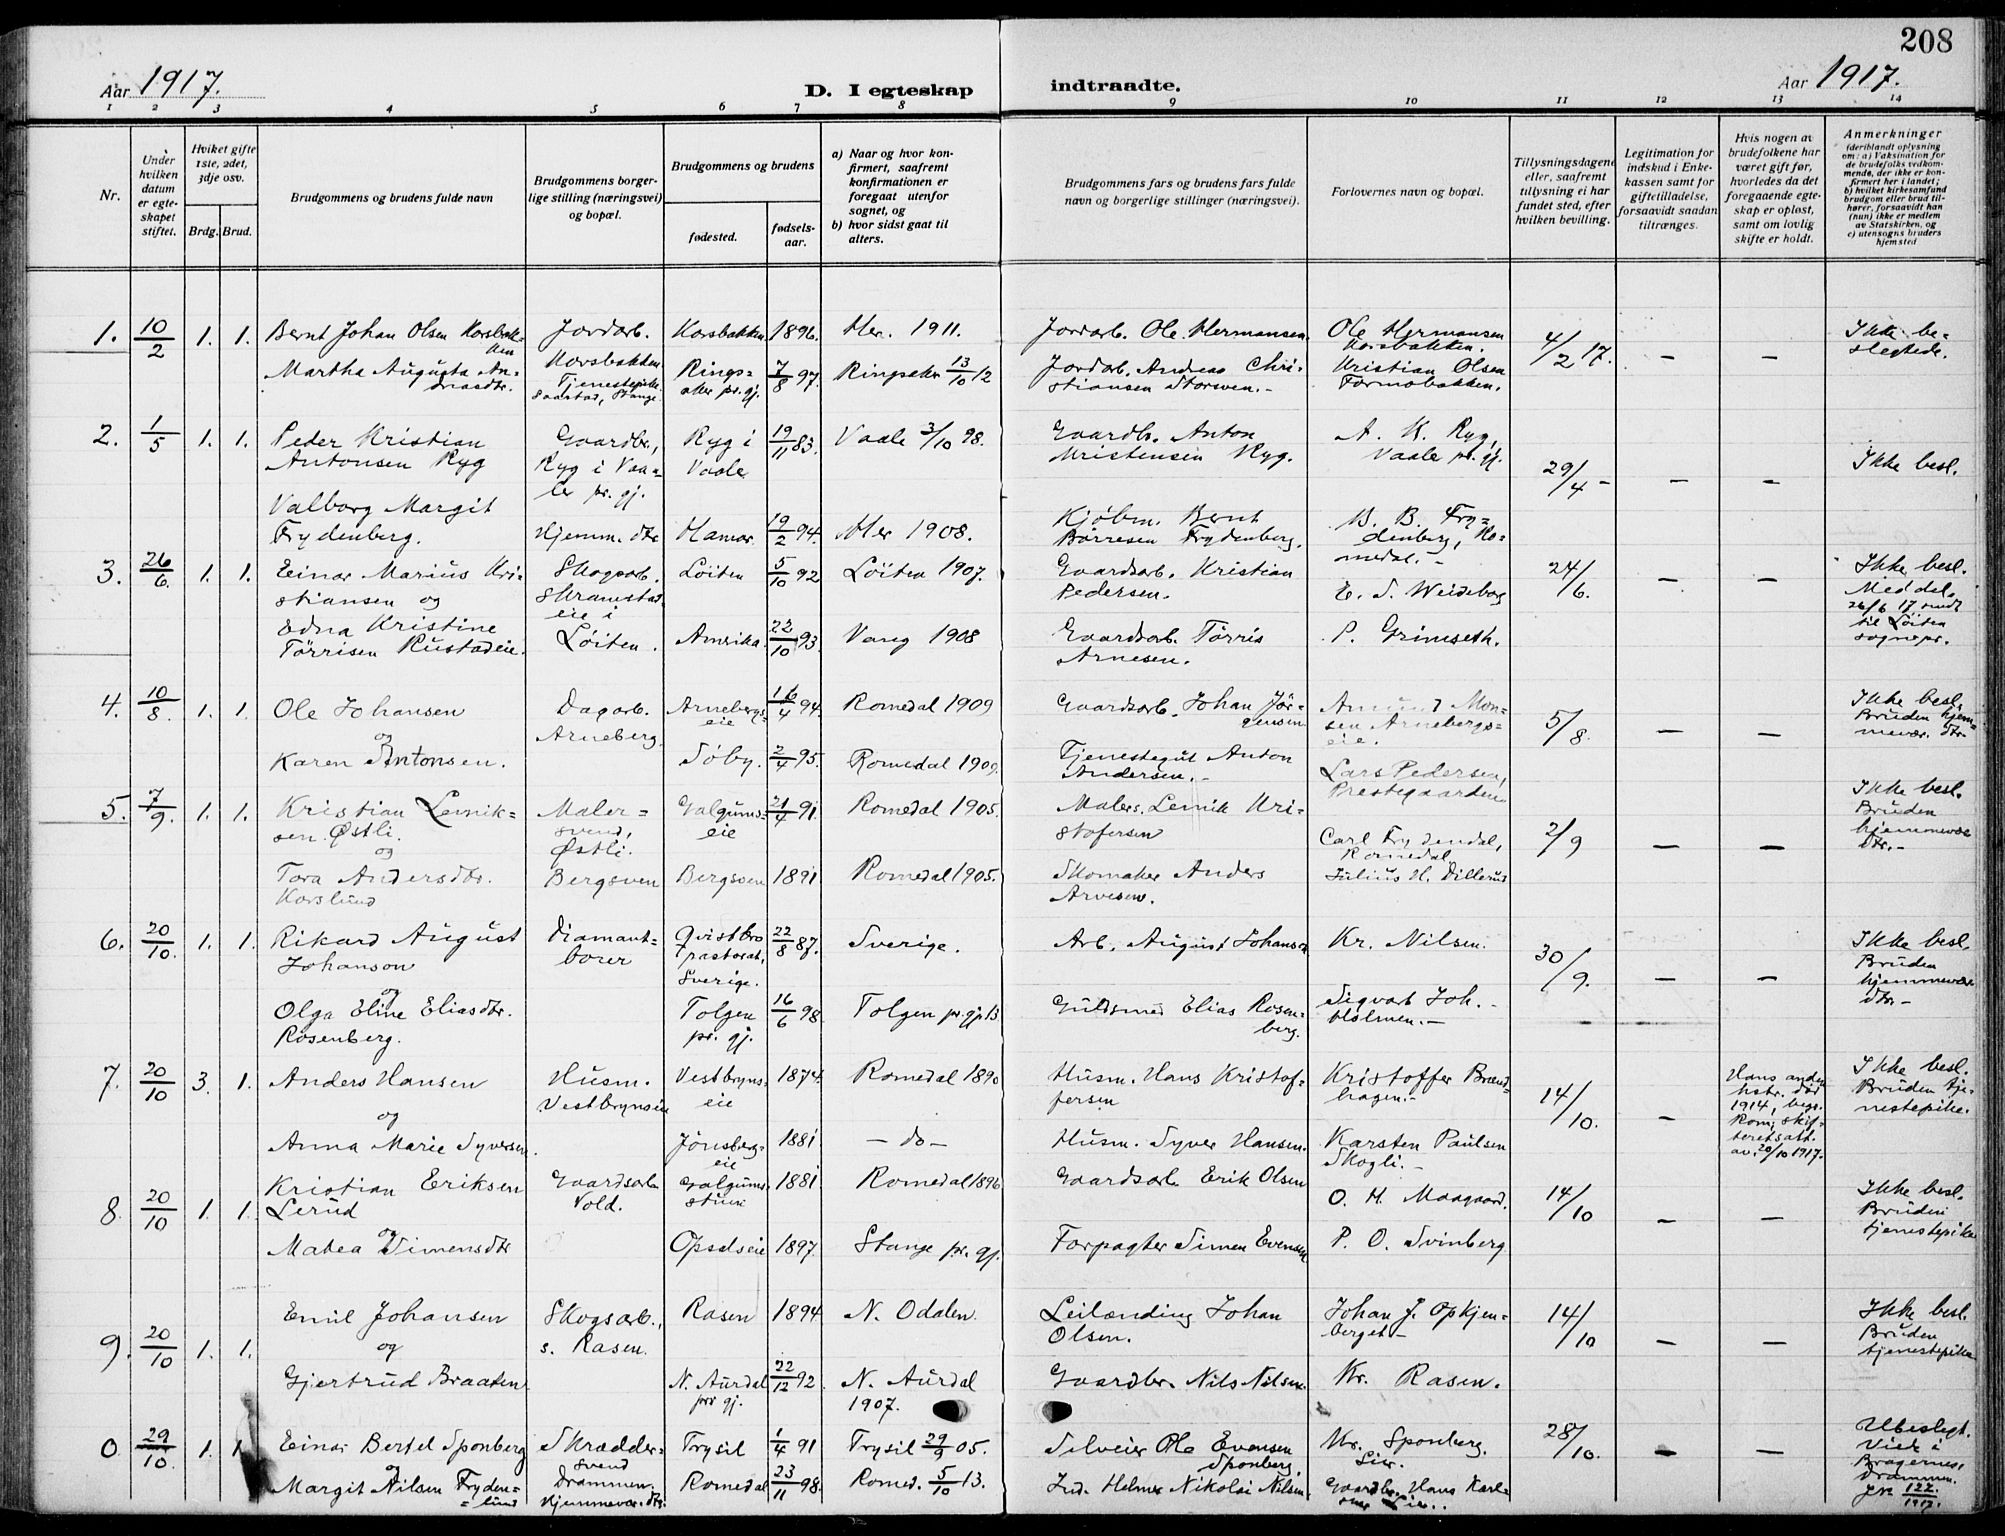 208
Aar 1917.
D. I egteskap
indtraadte.
Aar 1917.
1 2 3 4 5 6 7 8 9 10 11 12 13 14
Nr.
Under hvilken datum er egteskapet stiftet.
Hviket gifte 1ste, 2det, 3dje osv.
Brdg. Brud.
Brudgommens og brudens fulde navn
Brudgommens borgerlige stilling (næringsvei) og bopæl.
Brudgommens og brudens
fødested.
fødselsaar.
a) Naar og hvor konfirmert, saafremt konfirmationen er foregaat utenfor sognet, og
b) hvor sidst gaat til alters.
Brudgommens fars og brudens fars fulde navn og borgerlige stillinger (næringsvei).
Forlovernes navn og bopæl.
Tillysningsdagene eller, saafremt tillysning ei har fundet sted, efter hvilken bevilling.
Legitimation for indskud i Enkekassen samt for giftetilladelse, forsaavidt saadan tiltrænges.
Hvis nogen av brudefolkene har været gift før, hvorledes da det foregaaende egteskap er opløst, samt om lovlig skifte er holdt.
Anmerkninger (deriblandt oplysning om: a) Vaksination for de brudefolks vedkommende, der ikke er konfirmert her i landet; b) hvilket kirkesamfund brudgom eller brud tilhører, forsaavidt han (hun) ikke er medlem av Statskirken, og c) utensogns bruders hjemsted
1. 10/2 1. 1. Bernt Johan Olsen Korsbakken Jordarb. Korsbakken Korsbakken 1896. Her. 1911. Jordarb. Ole Hermansen. Ole Hermansen Korsbakken. 4/2 17. - - Ikke beslegtede.
Martha Augusta Andreasdtr. Tjenestepike Saastad, Stange. Ringsaker pr.gj. 7/8 97. Ringsaker 13/10 12 Jordarb. Andreas Christiansen Storsven.- Kristian Olsen Formobakken.
2. 1/5 1. 1. Peder Kristian Antonsen Ryg Gaardbr., Ryg i Vaaler pr. gj. Ryg i Vaale 19/11 83. Vaale 3/10 98. Gaardbr. Anton Kristensen Ryg. A. K. Ryg, Vaaler pr. gj. 29/4 - - - Ikke besl.
Valborg Margit Frydenberg. Hjemm. dtr Hamar 19/2 94. Her 1908. Kjøbm. Bernt Børresen Frydenberg. B. B. Frydenberg, Romedal.-
3. 26/6. 1. 1. Einar Marius Kristiansen og Skogsarb. Skramstadeie i Løiten. Løiten 5/10 92 Løiten 1907. Gaardsarb. Kristian Pedersen. E. S. Weideborg 24/6. - - Ikke besl. Meddel. 26/6 17 sendt til Løiten sognepr.
Edna Kristine Tørrisen Rustadeie. Amrika. 22/10 93 Vang 1908 Gaardsarb. Tørris Arnesen. P. Grimseth.
4. 10/8. 1. 1. Ole Johansen og Dagarb. Arneberg. Arnebergseie 16/4 94. Romedal 1909 Gaardsarb. Johan Jørgensen Amund Monsen Arnebergseie. 5/8. - - Ikke besl. Bruden hjemmevær. dtr-
Karen Antonsen. Søby. 2/4 95. Romedal 1909. Tjenestegut Anton Andersen.- Lars Pedersen, Prestegaarden
5. 7/9. 1. 1. Kristian Lemiksen Østli. og Malersvend, Østli. Galgumseie 21/4 91. Romedal 1905. Malers. Lemik Kristofersen Carl Frydendal, Romedal 2/9 - - Ikke besl. Bruden hjemmevær. dtr.-
Tora Andersdtr. Korslund Bergsven Bergsven 1891 Romedal 1905. Skomaker Anders Arvesen. Julius H. Dillerud
6. 20/10. 1. 1. Rikard August Johanson og Diamantborer Qvistbro pastorat, Sverige. 22/8 87. Sverige. Arb. August Johanson Kr. Nilsen. 30/9. - - Ikke besl. Bruden hjemmevær. dtr-
Olga Eline Eliasdtr. Rosenberg. Tolgen pr. gj. 16/6 98. Tolgen pr. gj. 13 Guldsmed Elias Rosenberg. Sigvart Joh. Holmen.-
7. 20/10 3. 1. Anders Hansen og Husm. Vestbrynseie Vestbrynseie 1874. Romedal 1890 Husm. Hans Kristoffersen Kristoffer Brændhagen.- 14/10. - Hans anden hstr. død 1914, begr. Rom; skifteretsatt. av. 20/10 1917. Ikke besl. Bruden tjenestepike.
Anna Marie Syversen. Jønsbergeie 1881 - do - Husm. Syver Hansen. Karsten Paulsen Skogli.-
8. 20/10 1. 1. Kristian Eriksen Lerud og Gaardsarb. Vold. Galgumsstuen 1881 Romedal 1896 Gaardsarb. Erik Olsen O. H. Maagaard. 14/10 - - Ikke besl. Bruden tjenestepike
Mathea Simensdtr Opsalseie 1897. Stange pr. gj. Forpagter Simen Evensen P. O. Svinberg
9. 20/10 1. 1. Emil Johansen og Skogsarb., s. Rasen. Rasen 1894. N. Odalen. Leilænding Johan Olsen. Johan J. Opkjenberget- 14/10 - - Ikke besl. Bruden tjenestepike
Gjertrud Braaten N. Aurdal pr gj. 22/12 92. N. Aurdal 1907. Gaardbr. Nils Nilsen. Kr. Rasen.
0 29/10. 1. 1. Einar Bertel Sponberg og Skræddersvend Drammen. Trysil 1/4 91 Trysil 29/9 05. Selveier Ole Evensen Sponberg. Kr. Sponberg. Lier. 28/10. - - Ubeslegt. Viet i Bragernes, Drammen. JN 122/1917.
Margit Nilsen Frydenlund Hjemmevær. dtr. Romedal 23/11 98. Romed. 5/10 13. Ind. Helmer Nikolai Nilsen. Gaardbr. Hans Karlsen Lier..